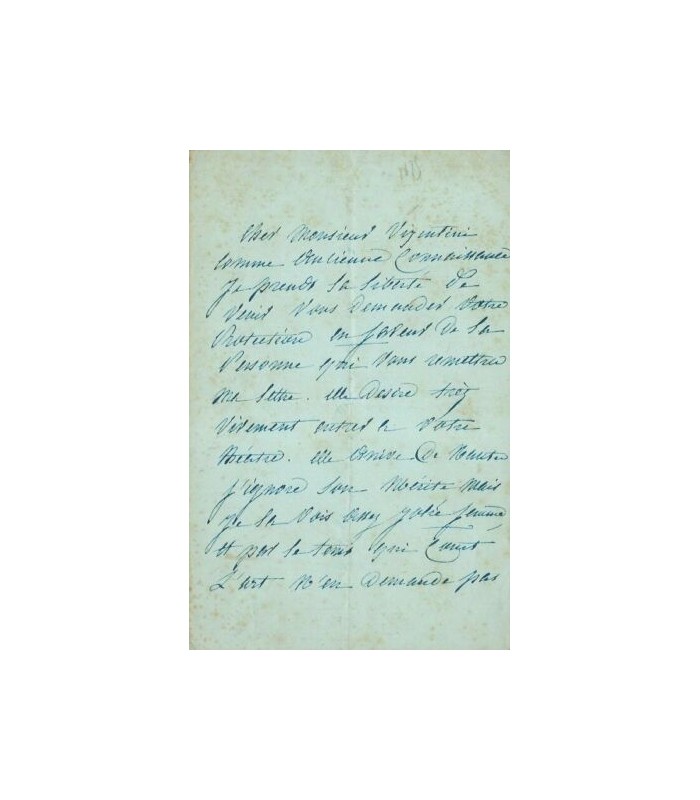 Cher Monsieur Vizentini
comme Ancienne Connaissance
Je prends La Liberté de
Venir Vous demander Votre
Protection en faveur de La
Personne qui Vous remettra
Ma Lettre. elle Desire très
Vivement entrer a Votre
théâtre. elle Arrive de Nantes
J'ignore Son Mérite Mais
Je La Vois Assez Jolie femme
et par le tems qui Court
L'art N'en Demande pas